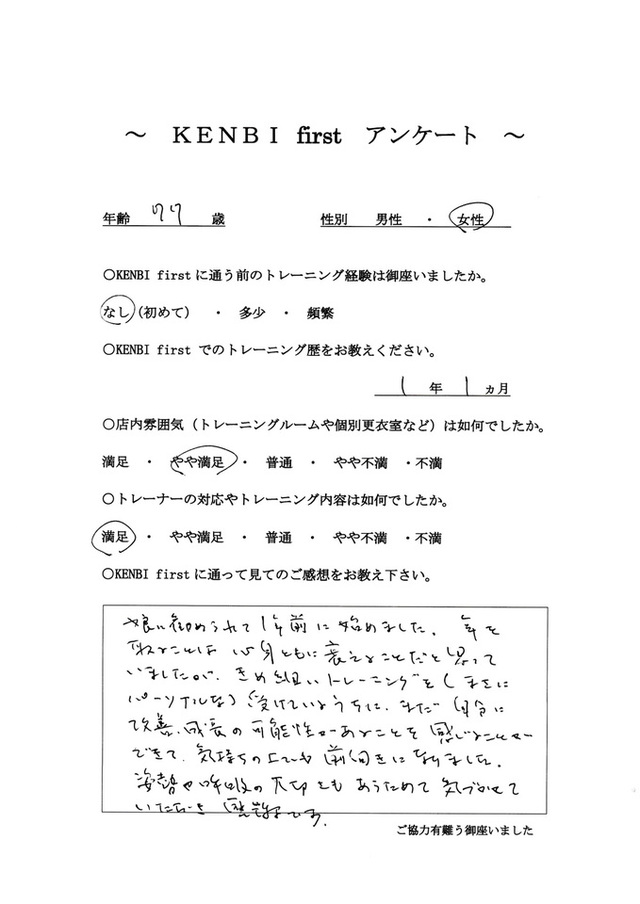 ～ KENBI first アンケート ～
年齢 77 歳 性別 男性 ・ 女性
○KENBI first に通う前のトレーニング経験は御座いましたか。
なし(初めて) ・ 多少 ・ 頻繁
○KENBI first でのトレーニング歴をお教えください。
1 年 1 ヵ月
○店内雰囲気（トレーニングルームや個別更衣室など）は如何でしたか。
満足 ・ やや満足 ・ 普通 ・ やや不満 ・不満
○トレーナーの対応やトレーニング内容は如何でしたか。
満足 ・ やや満足 ・ 普通 ・ やや不満 ・不満
○KENBI firstに通って見てのご感想をお教え下さい。
娘に勧められて1年前に始めました。年を
取ることは心身ともに衰えることだと思って
いましたが、きめ細いトレーニングを(まさに
パーソナルな)受けているうちに、まだ自分に
改善、成長の可能性があることを感じることが
できて、気持ちの上でも前向きになりました。
姿勢や呼吸の大切さもあらためて気づかせて
いただき感謝です。
ご協力有難う御座いました